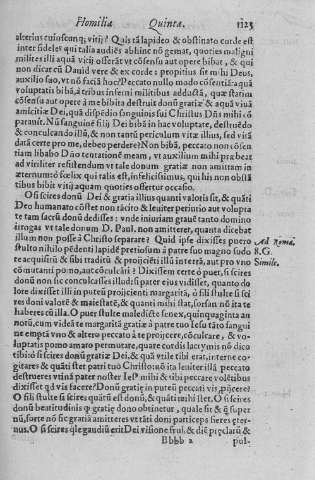 Homilia Quinta. 1125
alterius cuiuscmq; vitij? Quis tā lapideo & obstinato corde est
inter fideles qui talia audiēs abhinc nō gemat, quoties maligni
milites illi aquā vitij offerāt vt cōsensu aut opere bibat, & qui
non dicat cū Dauid vere & ex corde: propitius sit mihi Deus,
auxilio suo, vt nō faciā hoc? Peccato nullo modo cōsentiā: aquā
voluptatis bibā, à tribus infensi militibus adductā, quæ statim
cōsensu aut opere à me bibita destruit donū gratiæ & aquā viuā
amicitiæ Dei, quā dispēdio sanguinis sui Christus Dn̄s mihi cō
parauit. Nū sanguinē filij Dei bibā in hac voluptate, destruēdo
& conculcando illū, & non tantū periculum vitæ illius, sed vitā
datā certe pro me, debeo perdere? Non bibā, peccato non cōsen
tiam libabo Dn̄o teratione meam, vt auxilium mihi præbeat
ad viriliter resistendum vt tale donum gratiæ non amittam in
æternum: ô fœlix qui talis est, infelicissimus, qui his non obstā
tibus bibit vitij aquam quoties offertur occasio.
O si scires donū Dei & gratia illius quanti valoris sit, & quāti
Deo humanato cōstet non tācito & leuiter peritinio aut volupta
te tam sacrū donū dedisses: vnde iniuriam grauē tanto domino
irrogas vt tale donum D. Paul. non amitteret, quanta dicebat
illum non posse à Christo separare? Quid ipse dixisses puero
stulto nihilo pēdenti lapidē pretiosum à patre suo magno sudo
Ad Roma.
8. G.
te acquisitū & sibi traditū & proijciēti illū in terrā, aut pro vno
Simile.
cōmutanti pomo, aut cōculcāri? Dixissem certe ô puer, si scires
donū non sic conculcasses illud: si pater eius vidisset, quanto do
lore dixisset illi in puteū proijcienti margaritā, ô fili stulte si sci
res doni valorē & maiestatē, & quanti mihi stat, forsan nō ita te
haberes cū illa. O puer stulte maledicte senex, quinquaginta an
norū, cum videā te margaritā gratiæ à patre tuo Iesu tāto sangui
ne emptā vno & altero peccāto à te proijcere, cōculcare, & vo-
luptatis pomo amaro permutare, quare cur dis lacrymis nō dico
tibi: ô si scires donū gratiæ Dei, & quā vtile tibi erat, interne co-
gitares & quāti stet patri tuo Christo: nō ita leuiter illā peccato
destrueres vtinā pater noster Iesꝰ mihi & tibi peccare volētibus
dixisset qd vis facere? Donū gratię in puteū peccati vis, pijcere?
O fili stulte si scires quātū est donū, & quāti mihi stet. O si scires
donū beatitudinis ꝙ gratię dono obtinetur, quale sit & ꝗ̄ super
nū, forte nō sic gratiā amitteres vt tāti doni particeps fieres æter-
nus. O si scires qle gaudiū erit Dei visione frui, & diē pręclarū &
Bbbb 2 pul-